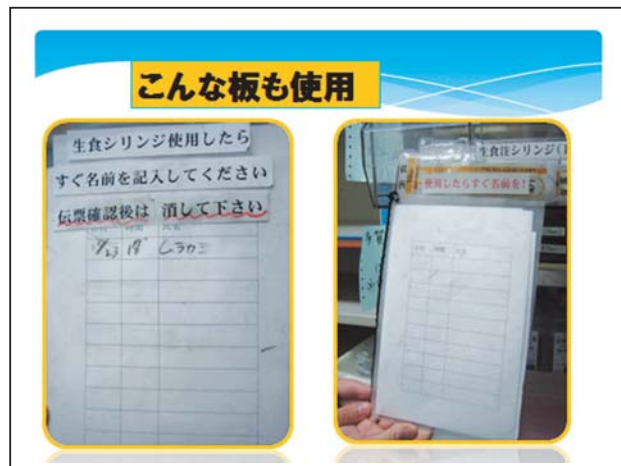 こんな板も使用
生食シリンジ使用したら
すぐ名前を記入してください
伝票確認後は 消して下さい
ムラカミ
生食注シリンジ(
使用したらすぐ名前を!